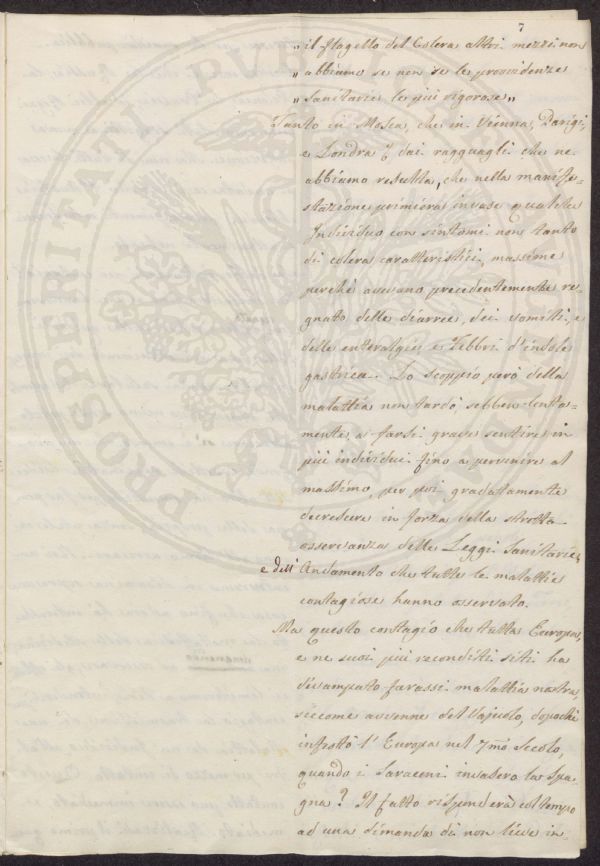 7
„ il flagello del Colera altri mezzi non
„ abbiamo se non se le providenze
„ Sanitarie le più rigorose „
Tanto in Mosca, che in Vienna, Parigi,
e Londra dai ragguagli che ne
abbiamo risulta, che nella manife=
stazione primiera invase qualche
Individuo con sintomi non tanto
di colera caratteristici, massime
perchè avevano precedentemente re=
gnato delle diarree, dei vomiti, e
delle enteralgie e Febbri d'indole
gastrica. Lo scoppio però della
malattia non tardò, sebben lenta=
mente, a farsi grave sentire in
più individui fino a pervenire al
massimo, per poi gradatamente
decrescere in forza della stretta
osservanza delle Leggi Sanitarie,
e dell' Andamento che tutte le malattie
contagiose hanno osservato.
Ma questo contagio che tutta Europa,
e ne suoi più reconditi siti ha
divampato farassi malattia nostra,
siccome avvenne del Vajuolo, dopochè
infettò l'Europa nel 7mo Secolo,
quando i Saraceni invasero la Spa=
gna? Il fatto risponderà col tempo
ad una dimanda di non lieve in=
PROSPERITATI PUBLICAE